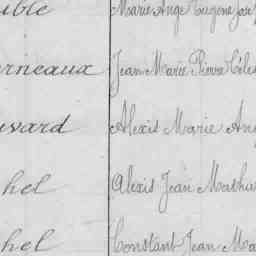 uble Marie Ange Eugène Jos
rneaux Jean Marie Pierre Céles
uvard Alexis Marie Ang
hel Alexis Jean Mathur
hel Constant Jean Ma